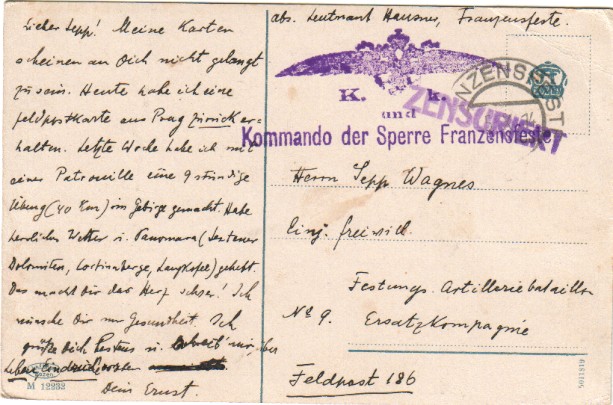 abs. Leutnant Hausner, Franzensfeste.
Lieber Sepp! Meine Karten
scheinen an Dich nicht gelangt
zu sein. Heute habe ich eine
Feldpostkarte aus Prag zurück er-
halten. Letzte Woche habe ich mit
einer Patrouille eine 9 stündige
Übung (40 Km) im Gebirge gemacht. Habe
herrliches Wetter u. Panorama (Sextener
Dolomiten, Langkofel) gehabt.
Das macht Dir das Herz schwer! Ich
wünsche Dir nur Gesundheit. Ich
grüße Dich bestens u.
Dein Ernst.
M 12232
K. k.
und
Kommando der Sperre Franzensfeste
ZENSURIERT
Herrn Sepp Wagnes
Einj. freiwill.
Festungs-Artilleriebataillon
No 9. Ersatzkompagnie
Feldpost 186